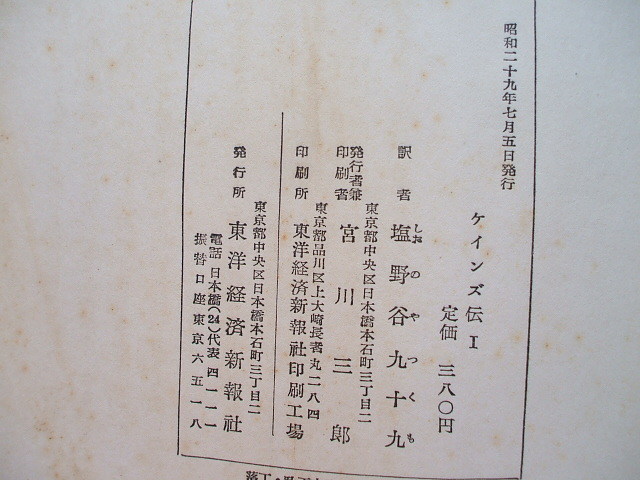 昭和二十九年七月五日発行
ケインズ伝I
定価 三八〇円
訳者 塩野谷九十九
しおのやつくも
東京都中央区日本橋本石町三丁目二
発行者兼
印刷者 宮川三郎
東京都品川区上大崎長者丸二八四
印刷所 東洋経済新報社印刷工場
東京都中央区日本橋本石町三丁目二
発行所 東洋経済新報社
電話日本橋(24)代表四一一一
振替口座東京六五一八